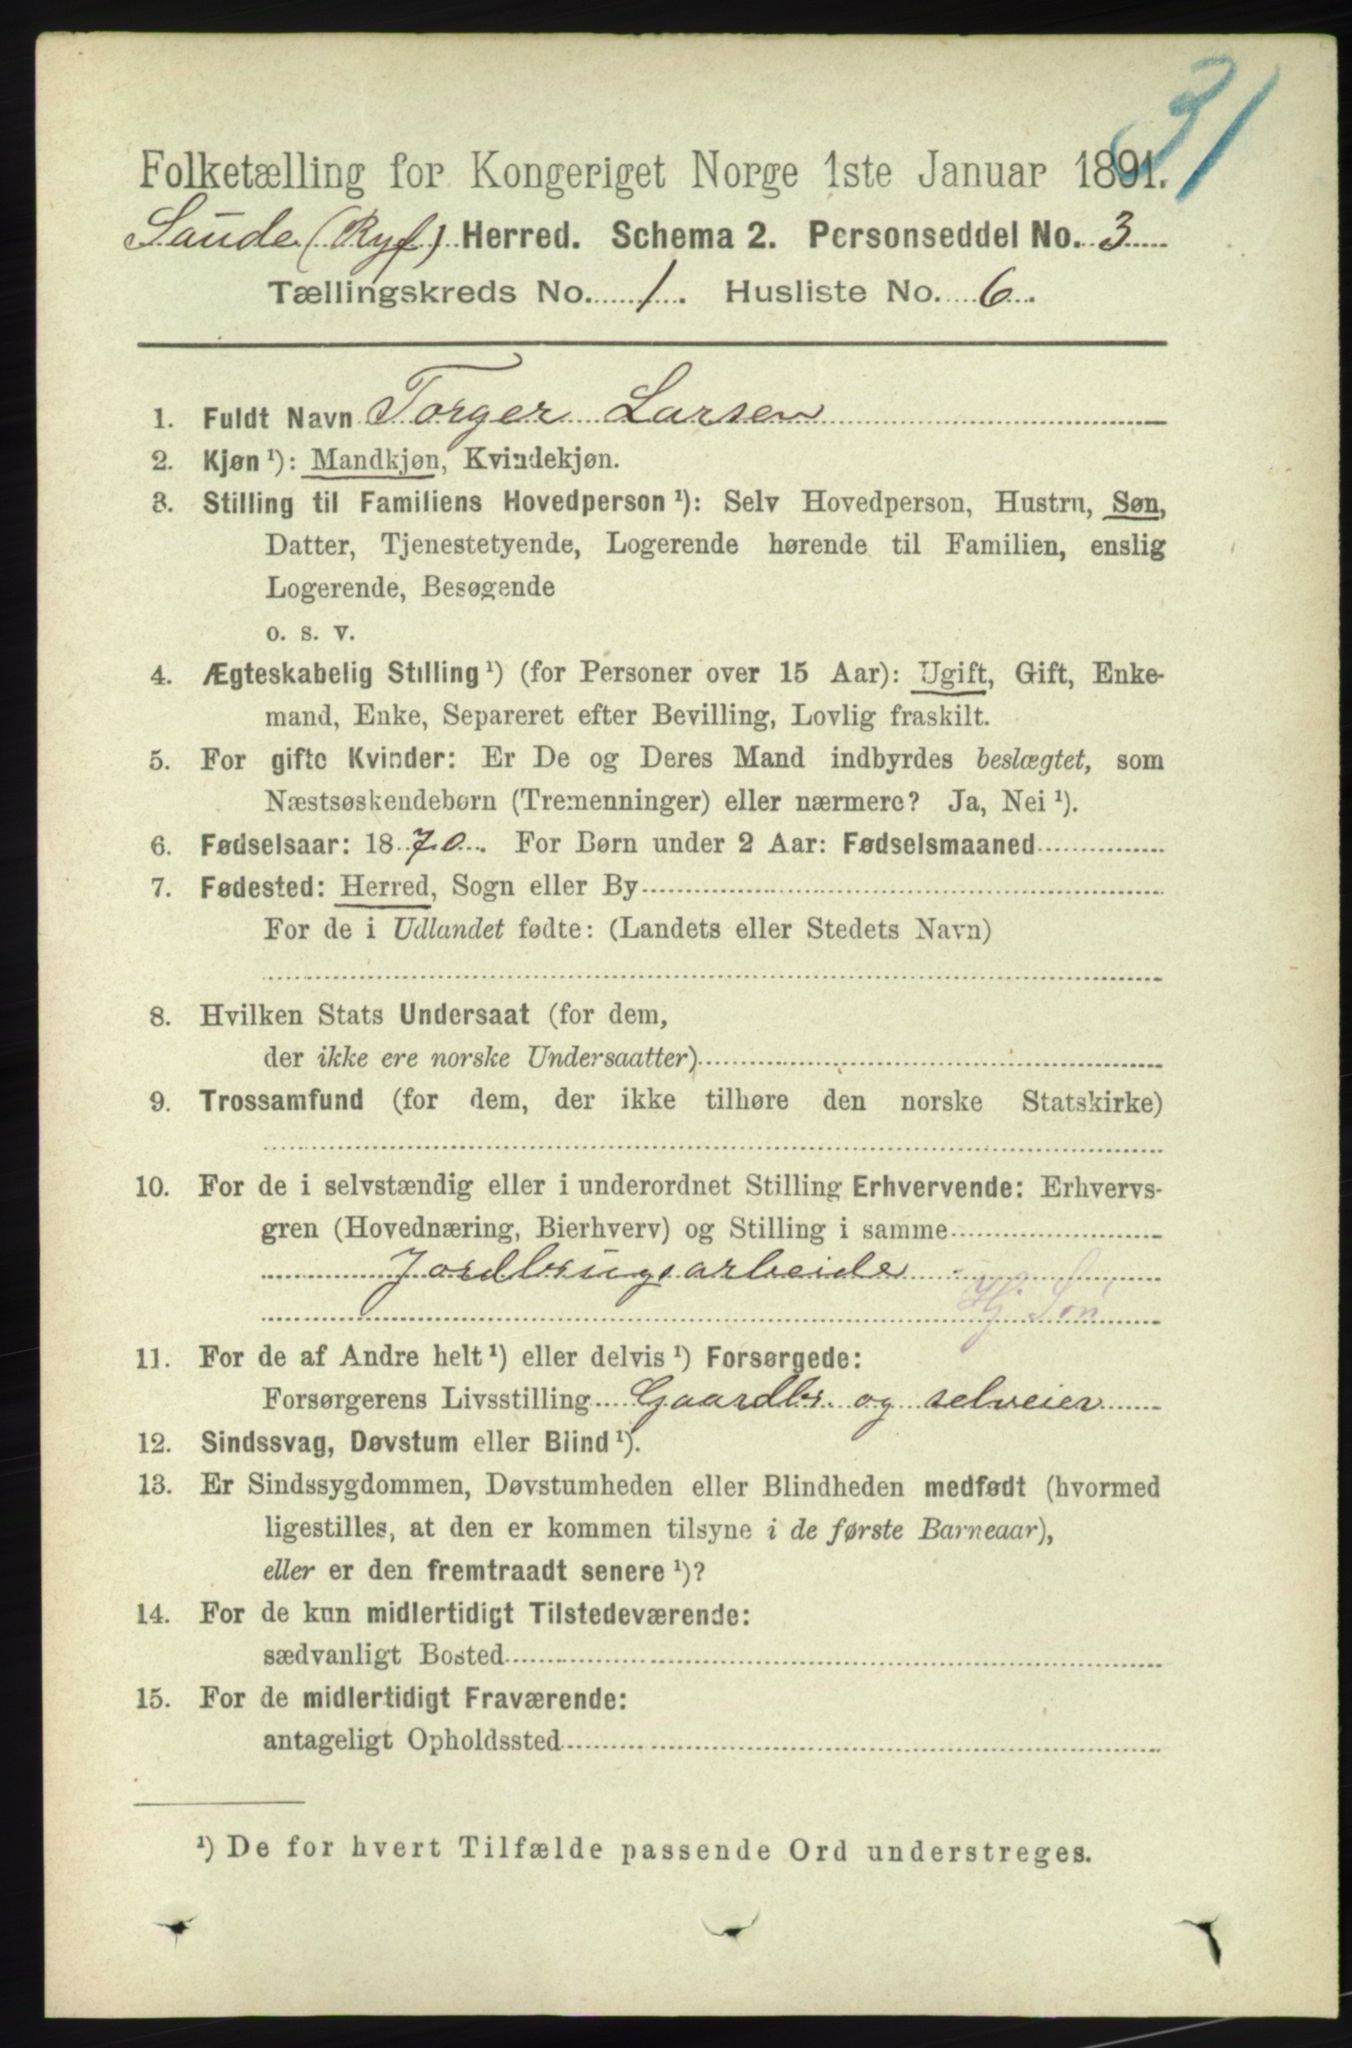 31
Folketælling for Kongeriget Norge 1ste Januar 1891.
Saude (Ryf) Herred. Schema 2. Personseddel No. 3
Tællingskreds No. 1. Husliste No. 6.
1. Fuldt Navn Torger Larsen
2. Kjøn ¹): Mandkjøn, Kvindekjøn.
3. Stilling til Familiens Hovedperson ¹): Selv Hovedperson, Hustru, Søn,
Datter, Tjenestetyende, Logerende hørende til Familien, enslig
Logerende, Besøgende
o. s. v.
4. Ægteskabelig Stilling ¹) (for Personer over 15 Aar): Ugift, Gift, Enke-
mand, Enke, Separeret efter Bevilling, Lovlig fraskilt.
5. For gifte Kvinder: Er De og Deres Mand indbyrdes beslægtet, som
Næstsøskendebørn (Tremenninger) eller nærmere? Ja, Nei ¹).
6. Fødselsaar: 1870. For Børn under 2 Aar: Fødselsmaaned
7. Fødested: Herred, Sogn eller By
For de i Udlandet fødte: (Landets eller Stedets Navn)
8. Hvilken Stats Undersaat (for dem,
der ikke ere norske Undersaatter)
9. Trossamfund (for dem, der ikke tilhøre den norske Statskirke)
10. For de i selvstændig eller i underordnet Stilling Erhvervende: Erhvervs-
gren (Hovednæring, Bierhverv) og Stilling i samme
Jordbrugsarbeide
Hj. Søn
11. For de af Andre helt ¹) eller delvis ¹) Forsørgede:
Forsørgerens Livsstilling Gaardbr. og selveier
12. Sindssvag, Døvstum eller Blind ¹).
13. Er Sindssygdommen, Døvstumheden eller Blindheden medfødt (hvormed
ligestilles, at den er kommen tilsyne i de første Barneaar),
eller er den fremtraadt senere ¹)?
14. For de kun midlertidigt Tilstedeværende:
sædvanligt Bosted
15. For de midlertidigt Fraværende:
antageligt Opholdssted
¹) De for hvert Tilfælde passende Ord understreges.